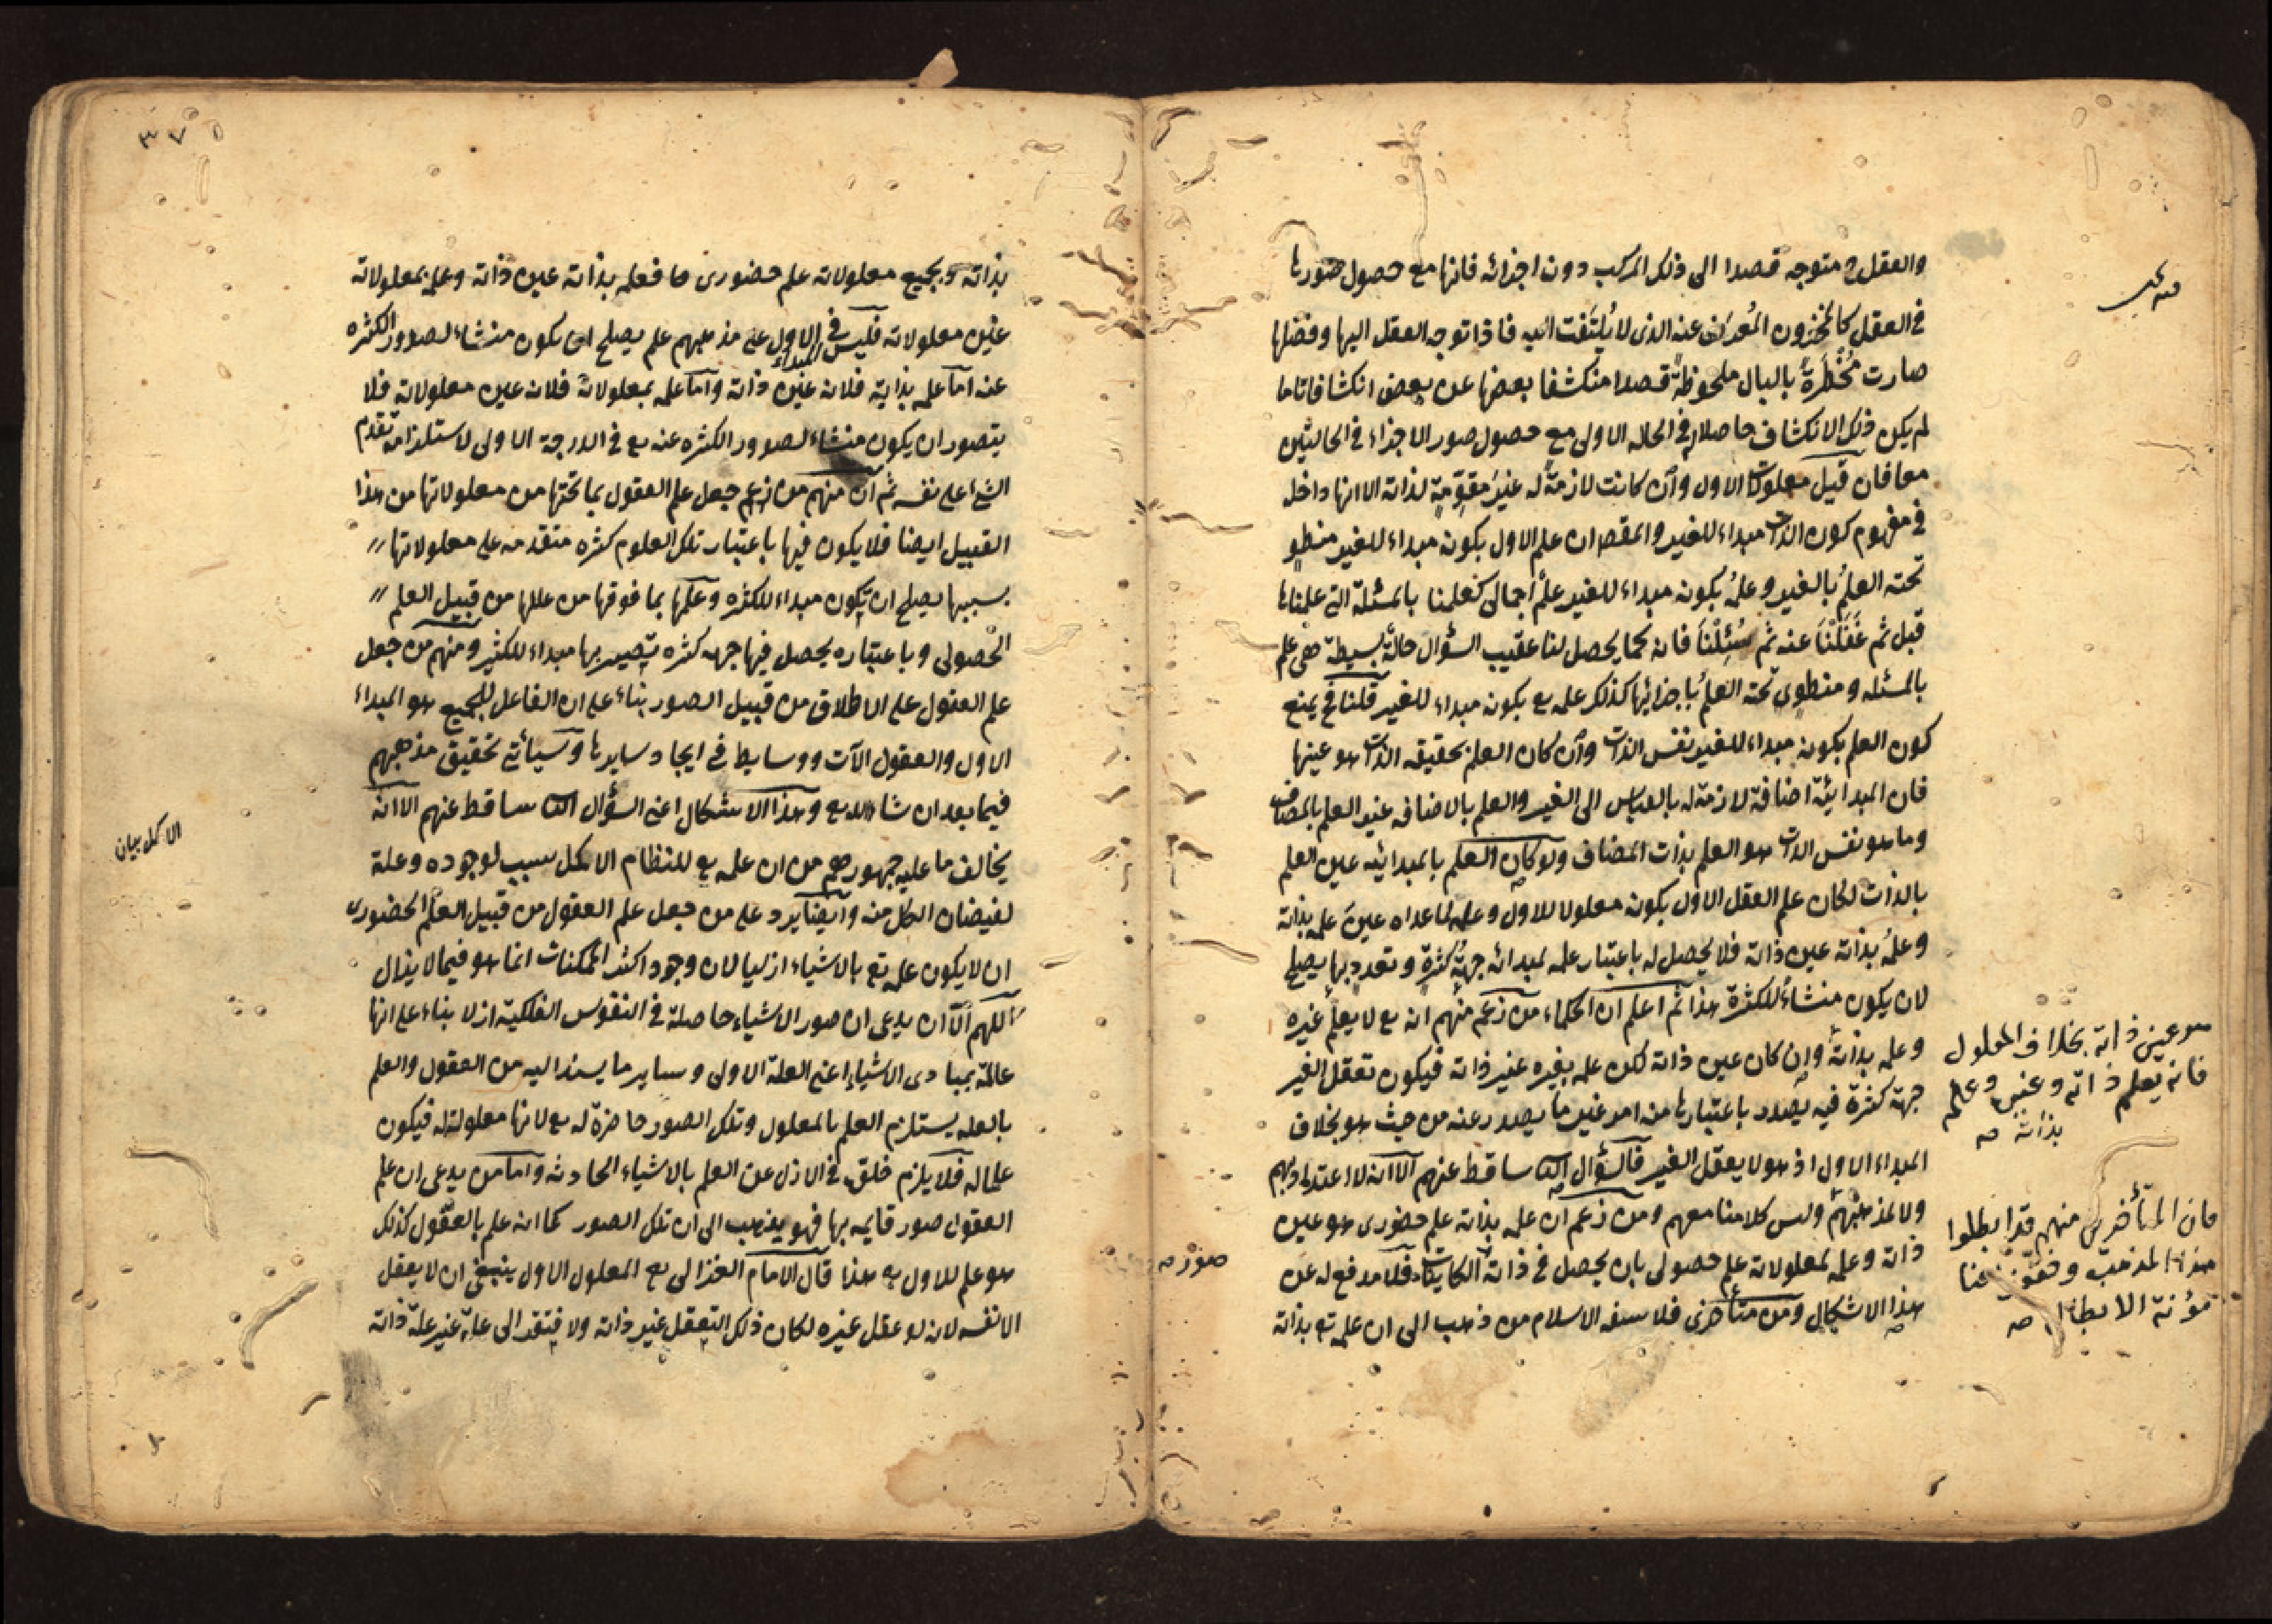 والعقل ح متوجه قصدا الى ذلك المركب دون اجزائه فانها مع حصول صورها
فى العقل كالمخزون المُعرَض عنه الذى لا يُلتَفت اليه فاذا توجه العقل اليها وفصّلها
صارت مُخطَرةً بالبال ملحوظةً قصدا منكشفا بعضها عن بعض انكشافا تاما
لم يكن ذلك الانكشاف حاصلا فى الحاله الاولى مع حصول صور الاجزاء فى الحالتين
معا فان قيل معلولات الاول وان كانت لازمةً له غيرَ مقوِّمةٍ لذاته الا انها داخله
فى مفهوم كون الذات مبداء للغير والمقصـ ان علم الاول بكونه مبداء للغير منطوٍ
تحته العلمُ بالغير وعلمُه بكونه مبداء للغير علمٌ اجمالى كعلمنا بالمسئلة التى علمناها
قبل ثم غَفَلْنَا عنه ثم سُئِلْنَا فانه كما يحصل لنا عقيب السؤال حالةٌ بسيطة هى علم
بالمسئله ومنطوى تحته العلمُ باجزائها كذلك علمه تع بكونه مبداء للغير قلنا ح يمنع
كون العلم بكونه مبداء للغير نفس الذات وان كان العلم بحقيقه الذات هو عينها
فان المبدائيّة اضافة لازمة له بالقياس الى الغير والعلم بالاضافه غير العلم بالمضاف
وما هو نفس الذات هو العلم بذات المضاف ولو كان العلم بالمبدائيّه عين العلم
بالذات لكان علم العقل الاول بكونه معلولا للاول وعلمه لما عداه عينَ علمه بذاته
وعلمُه بذاته عين ذاته فلا يحصل له باعتبار علمه لمبدائه جهةُ كثرةٍ وتعدد بها يصلح
لان يكون منشاءً للكثرة هذا ثم اعلم ان الحكماء من زعم منهم انه تع لا يعلم غيره
وعلمه بذاته وان كان عين ذاته لكن علمه بغيره غير ذاته فيكون تعقل الغير
جهة كثرة فيه يصدر باعتبارها منه امر غير ما يصدر عنه من حيث هو بخلاف
المبداء الاول اذ هو لا يعقل الغير فالسؤال ساقط عنهم الا انه لا اعتداد بهم
ولا لمذهبهم وليس كلامنا معهم ومن زعم ان علمه بذاته علم حضورى هو عين
ذاته وعلمه لمعلولاته علم حصولى بان يحصل فى ذاته فلا مدفع له عن
هذا الاشكال ومن متأخرى فلاسفه الاسلام من ذهب الى ان علمه تع بذاته
هو عين ذاته بخلاف المعلول
فانه يعلم ذاته وغيره وعلمه
بذاته صه
فان المتأخرين منهم قد ابطلوا
هذا المذهب عنا
مؤنة الابطال صه
صور صه
٣٧
بذاته وبجميع معلولاته علم حضورى ما فعلمه بذاته عين ذاته وعلمه بمعلولاته
عين معلولاته فليس فى المبداء الاول على مذهبهم علم يصلح ان يكون منشاء لصدور الكثره
عنه اما علمه بذاته فلانه عين ذاته واما علمه بمعلولاته فلانه عين معلولاته فلا
يتصور ان يكون منشاء لصدور الكثره عنه تع فى الدرجة الاولى لاستلزامه تقدم
الشئ على نفسه ثم ان منهم من زعم جعل علم العقول بما تحتها من معلولاتها من هذا
القبيل ايضا فلا يكون فيها باعتبار تلك العلوم كثره متقدمه على معلولاتها
بسببها يصلح ان يكون مبداء للكثره وعلمها بما فوقها من عللها من قبيل العلم
الحصولى وباعتباره يحصل فيها جهه كثره تصير بها مبداء للكثير ومنهم من جعل
علم العقول على الاطلاق من قبيل الصور بناء على ان الفاعل للجميع هو المبداء
الاول والعقول الآت ووسايط فى ايجاد سايرها وسيأتى تحقيق مذهبهم
فيما بعد ان شاء الله تع وهذا الاشكال اعنى السؤال ساقط عنهم الا انه
يخالف ما عليه جمهورهم من ان علمه تع للنظام الاكمل سبب لوجوده وعلة
لفيضان الكل منه وايضا يرد على من جعل علم العقول من قبيل العلم الحضورى
ان لا يكون علمه تع بالاشياء ازليا لان وجود اكثر الممكنات انما هو فيما لا يزال
اللهم الا ان يدعى ان صور الاشياء حاصلة فى النفوس الفلكية ازلا بناء على انها
عالمة بمبادى الاشياء اعنى العلة الاولى وساير ما يستند اليه من العقول والعلم
بالعله يستلزم العلم بالمعلول وتلك الصور حاضرة له تع لانها معلولة له فيكون
علما له فلا يلزم خلقه فى الازل عن العلم بالاشياء الحادثه واما من يدعى ان علم
العقول صور قايمه بها فهو يذهب الى ان تلك الصور كما انه علم بالعقول كذلك
هو علم للاول به هذا قال الامام الغزالى تع المعلول الاول ينبغى ان لا يعقل
الا نفسه لانه لو عقل غيره لكان ذلك التعقل غير ذاته ولا فتقد الى علة غير علة ذاته
الاكمل بيان